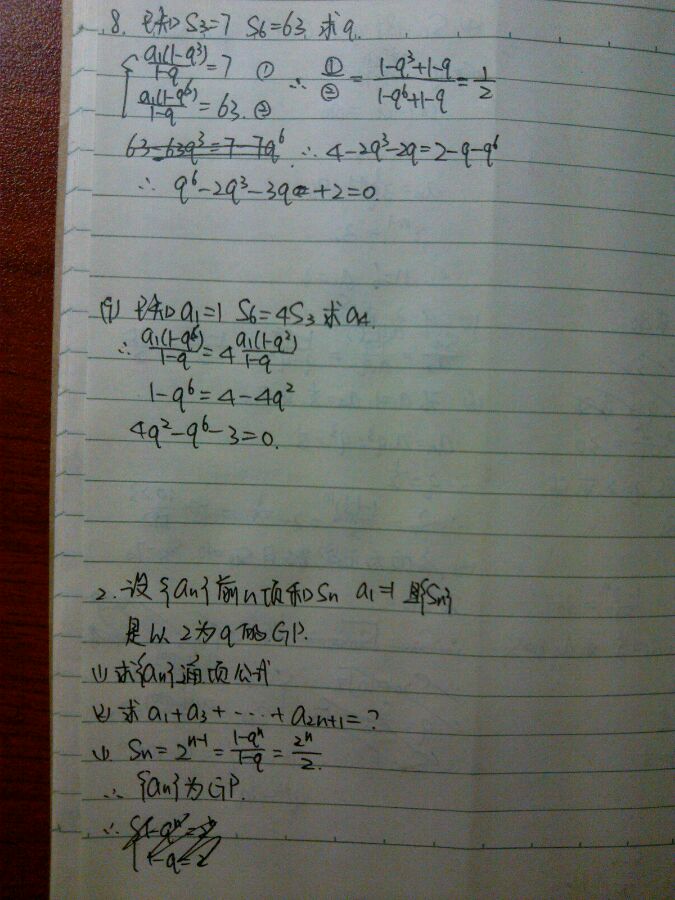 8. 已知 S₃=7 S₆=63 求q.
a₁(1-q³)/1-q=7 ① ∴ ①/② = 1-q³+1-q/1-q⁶+1-q = 1/2
a₁(1-q⁶)/1-q=63. ②
63-63q³=7-7q⁶ ∴ 4-2q³-2q=2-q-q⁶
∴ q⁶-2q³-3q +2=0.
(9) 已知 a₁=1 S₆=4S₃ 求a₄.
∴ a₁(1-q⁶)/1-q=4 a₁(1-q²)/1-q
1-q⁶=4-4q²
4q²-q⁶-3=0.
2. 设{an}前n项和Sn a₁=1 且{Sn}
是以2为q的GP.
(1) 求{an}通项公式
(2) 求 a₁+a₃+······+a₂n+₁=?
(1) Sn=2ⁿ⁻¹=1-qⁿ/1-q=2ⁿ/2.
∴ {an}为GP.
∴ 1-qⁿ=2
1-q=2